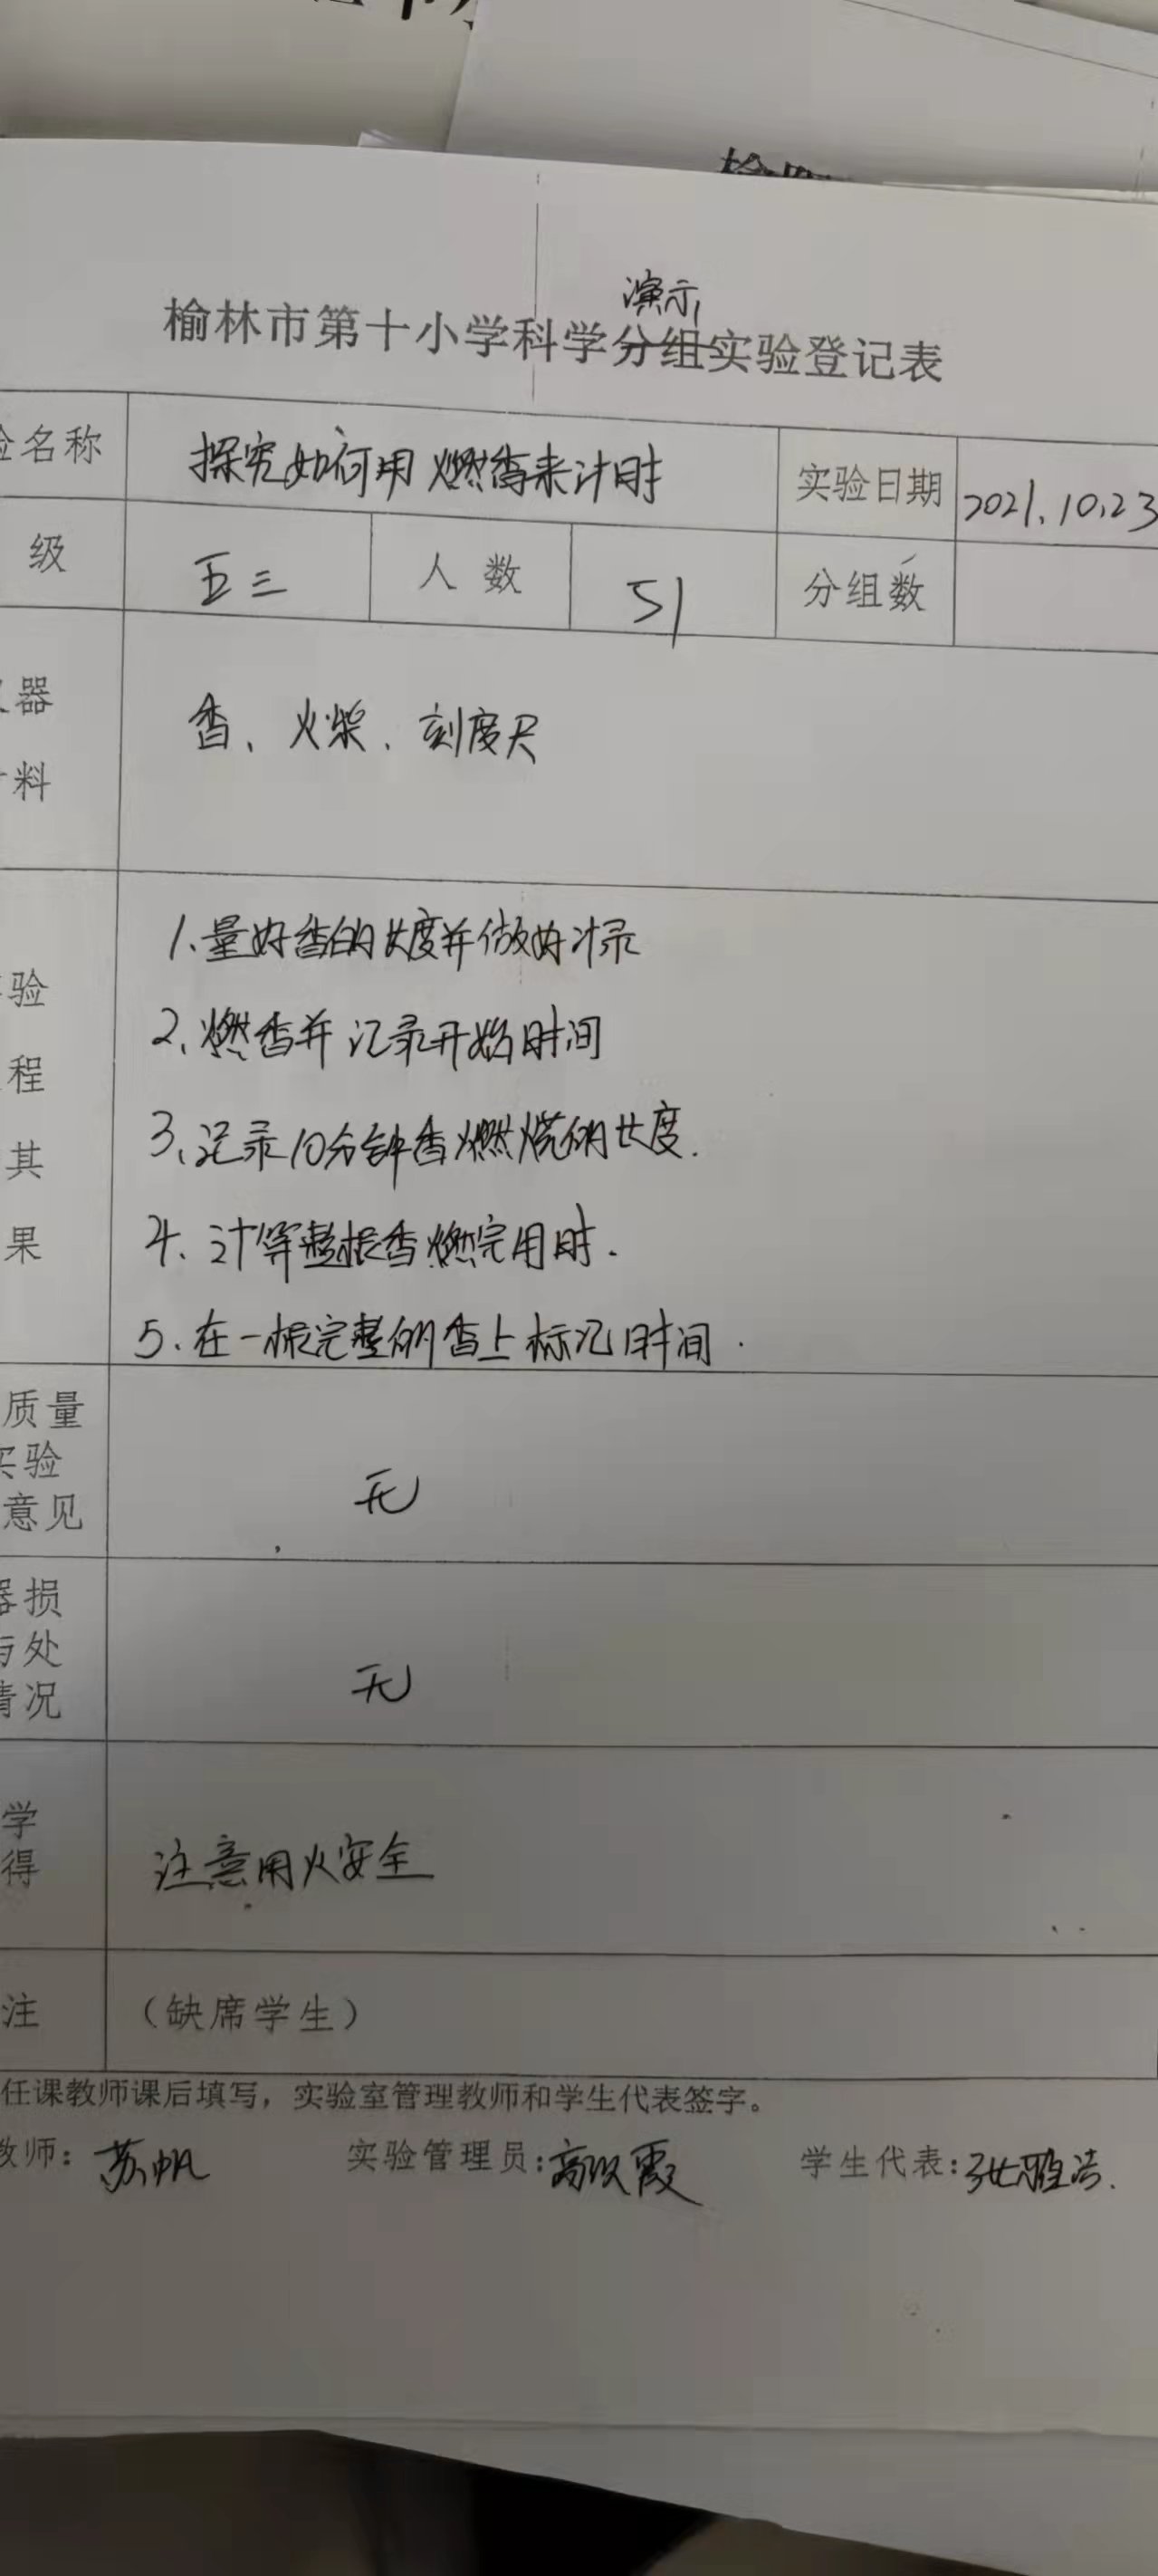 演示
榆林市第十小学科学分组实验登记表
验名称 探究如何用燃香来计时 实验日期 2021.10.23
级 五三 人数 51 分组数
器 香、火柴、刻度尺
料
1、量好香的长度并做好记录
验 2、燃香并记录开始时间
程 3、记录10分钟香燃烧的长度.
其
果 4、计算整根香燃完用时.
5、在一根完整的香上标记时间.
质量
实验 无
意见
器损
与处 无
情况
学
得 注意用火安全
注 （缺席学生）
任课教师课后填写，实验室管理教师和学生代表签字。
教师：苏帆 实验管理员：高 霞 学生代表：张雅洁.